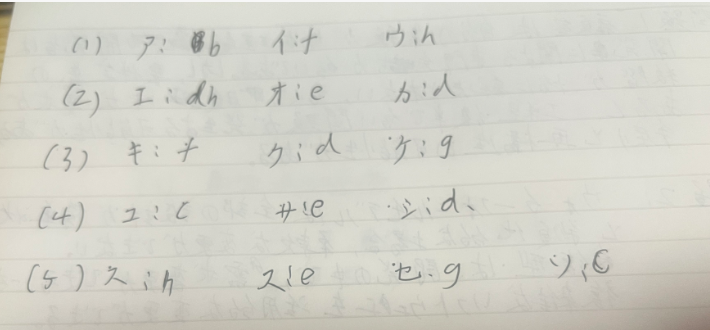 (1) ア: b イ:f ウ:h
(2) エ:dh オ:e カ:d
(3) キ:f ク:d ケ:g
(4) コ:c サ:e シ:d、
(5) ス:h ス:e セ:g ソ:c